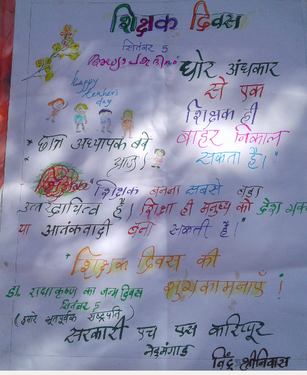 शिक्षक दिवस
सितंबर 5
घोर अंधकार
से एक
Happy
teacher's
day
शिक्षक ही
बाहर निकाल
सकता है।
* छात्र अध्यापक बने
आज।
शिक्षक बनना सबसे बड़ा
उत्तरदायित्व है। शिक्षा ही मनुष्य को देश भक्त
या आतंकवादी बना सकती है।
शिक्षक दिवस की
शुभकामनाएँ!
डॉ. राधाकृष्ण का जन्म दिवस
सितंबर 5
(हमारे भूतपूर्व राष्ट्रपति)
सरकारी एच एस करिप्पूर
नेडुमंगाड